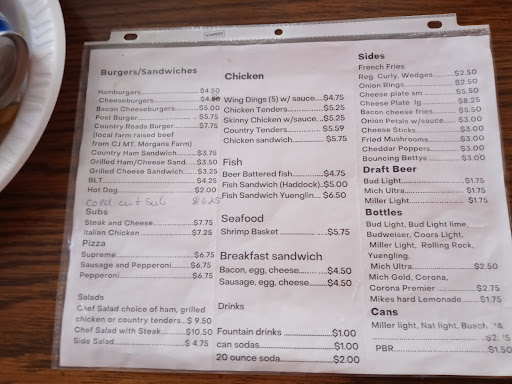 Burgers/Sandwiches
Hamburgers $4.50
Cheeseburgers
Bacon Cheeseburgers $5.00
Post Burger $5.75
Country Roads Burger $7.75
(local farm raised beef
from CJ MT. Morgans Farm)
Country Ham Sandwich $3.75
Grilled Ham/Cheese Sand. $3.50
Grilled Cheese Sandwich $3.25
BLT $4.25
Hot Dog $2.00
cold cut Sub $6.25
Subs
Steak and Cheese $7.75
Italian Chicken $7.25
Pizza
Supreme $6.75
Sausage and Pepperoni $6.75
Pepperoni $6.75
Salads
Chef Salad choice of ham, grilled
chicken or country tenders..$ 9.50
Chef Salad with Steak $10.50
Side Salad $ 4.75
Chicken
Wing Dings (5) w/ sauce....$4.75
Chicken Tenders $5.25
Skinny Chicken w/sauce...$5.25
Country Tenders $5.59
Chicken sandwich $5.75
Fish
Beer Battered fish $4.75
Fish Sandwich (Haddock)..$5.00
Fish Sandwich Yuenglin... $6.50
Seafood
Shrimp Basket $5.75
Breakfast sandwich
Bacon, egg, cheese $4.50
Sausage, egg, cheese $4.50
Drinks
Fountain drinks $1.00
can sodas $1.00
20 ounce soda $2.00
Sides
French Fries
Reg. Curly, Wedges $2.50
Onion Rings $2.50
Cheese plate sm $5.50
Cheese Plate lg $8.25
Bacon cheese fries $5.50
Onion Petals w/sauce $3.00
Cheese Sticks $3.00
Fried Mushrooms $3.00
Cheddar Poppers $3.00
Bouncing Bettys $3.00
Draft Beer
Bud Light $1.75
Mich Ultra $1.75
Miller Light $1.75
Bottles
Bud Light, Bud Light lime,
Budweiser, Coors Light,
Miller Light, Rolling Rock,
Yuengling.
Mich Ultra $2.50
Mich Gold, Corona,
Corona Premier $2.75
Mikes hard Lemonade $1.75
Cans
Miller light, Nat light, Busch
PBR $1.50